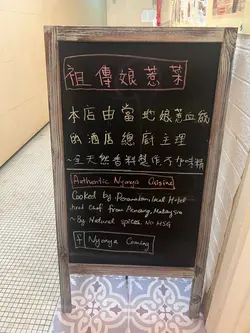 祖傳娘惹菜
本店由當地娘惹血統
的酒店總廚主理
~全天然香料製作不作味精
Authentic Nyonya Cuisine
Cooked by Peranakan, local Hotel
chef from Penang, Malaysia
~By Natural spices, No MSG
Nyonya Coming